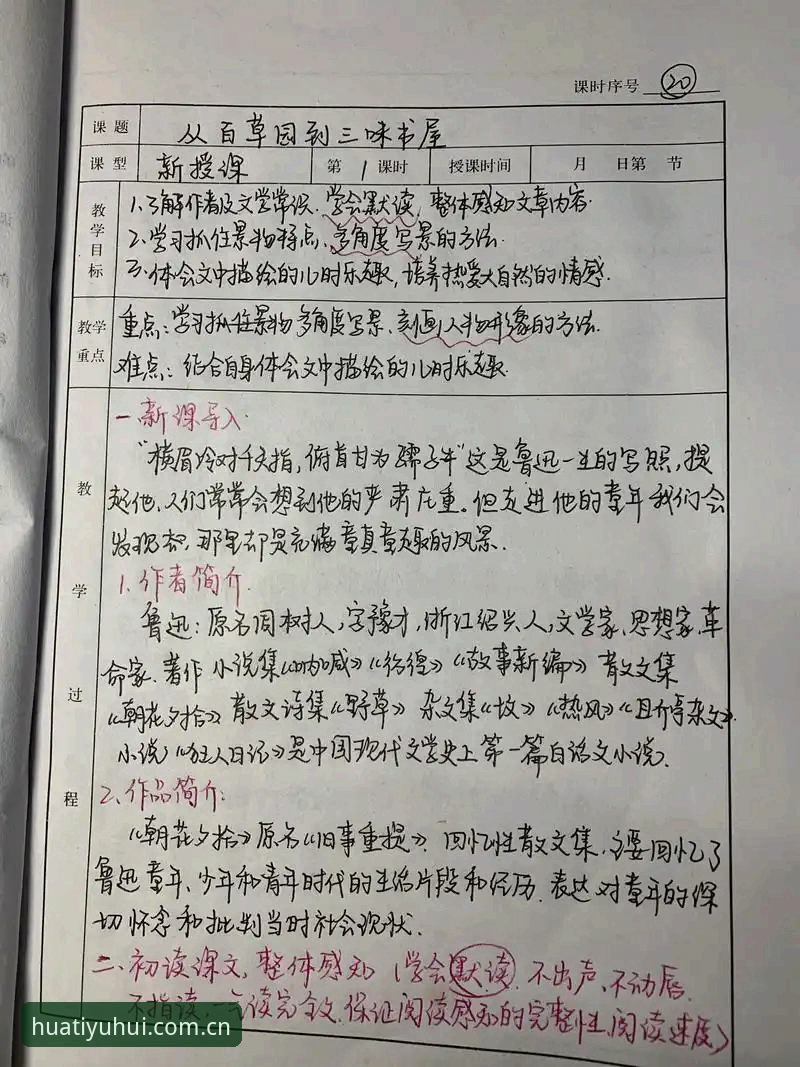 课时序号 20
课题 从百草园到三味书屋
课型 新授课 第 1 课时 授课时间 月 日第 节
教学目标
1.了解作者及文学常识.学会默读,整体感知文章内容.
2.学习抓住景物特点、多角度写景的方法.
3.体会文中描绘的儿时乐趣,培养热爱大自然的情感.
教学重点
重点:学习抓住景物多角度写景、刻画人物形象的方法.
难点:结合自身体会文中描绘的儿时乐趣.
教学过程
一.新课导入.
"横眉冷对千夫指,俯首甘为孺子牛"这是鲁迅一生的写照,提
起他,人们常常会想到他的严肃庄重。但走进他的童年我们会
发现,那里却是充满童真童趣的风景.
1.作者简介.
鲁迅:原名周树人,字豫才,浙江绍兴人,文学家、思想家、革
命家.著作 小说集《呐喊》《彷徨》《故事新编》 散文集
《朝花夕拾》 散文诗集《野草》 杂文集《坟》《热风》《且介亭杂文》.
小说《狂人日记》是中国现代文学史上第一篇白话文小说.
2.作品简介:
《朝花夕拾》原名《旧事重提》.回忆性散文集,主要回忆了
鲁迅童年、少年和青年时代的生活片段和经历.表达对童年的深
切怀念和批判当时社会现状.
二、初读课文,整体感知 (学会默读 不出声、不动唇、
不指读,一气读完全文.保证阅读感知的完整性,阅读速度)
huatiyuhui.com.cn